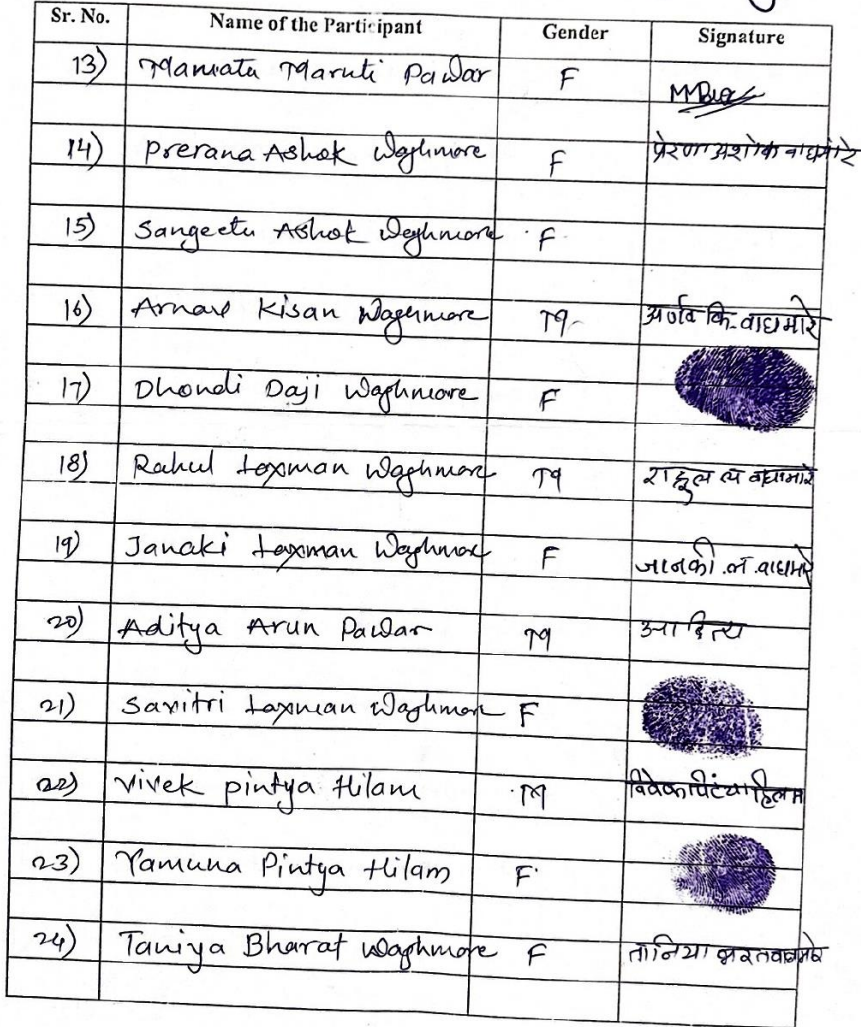 Sr. No. Name of the Participant Gender Signature
13) Mamata Maruti Pawar F
14) Prerana Ashok Waghmore F प्रेरणा अशोक वाघमारे
15) Sangeeta Ashok Waghmore F
16) Arnav Kisan Waghmore M अर्णव कि. वाघमारे
17) Dhondi Daji Waghmore F
18) Rahul Laxman Waghmore M राहुल ल वाघमारे
19) Janaki Laxman Waghmore F जानकी .ल. वाघमारे
20) Aditya Arun Pawar M आदित्य
21) Savitri Laxman Waghmore F
22) Vivek Pintya Hilam M विवेक पिंट्या हिलम
23) Yamuna Pintya Hilam F
24) Taniya Bharat Waghmore F तानिया भरत वाघमारे